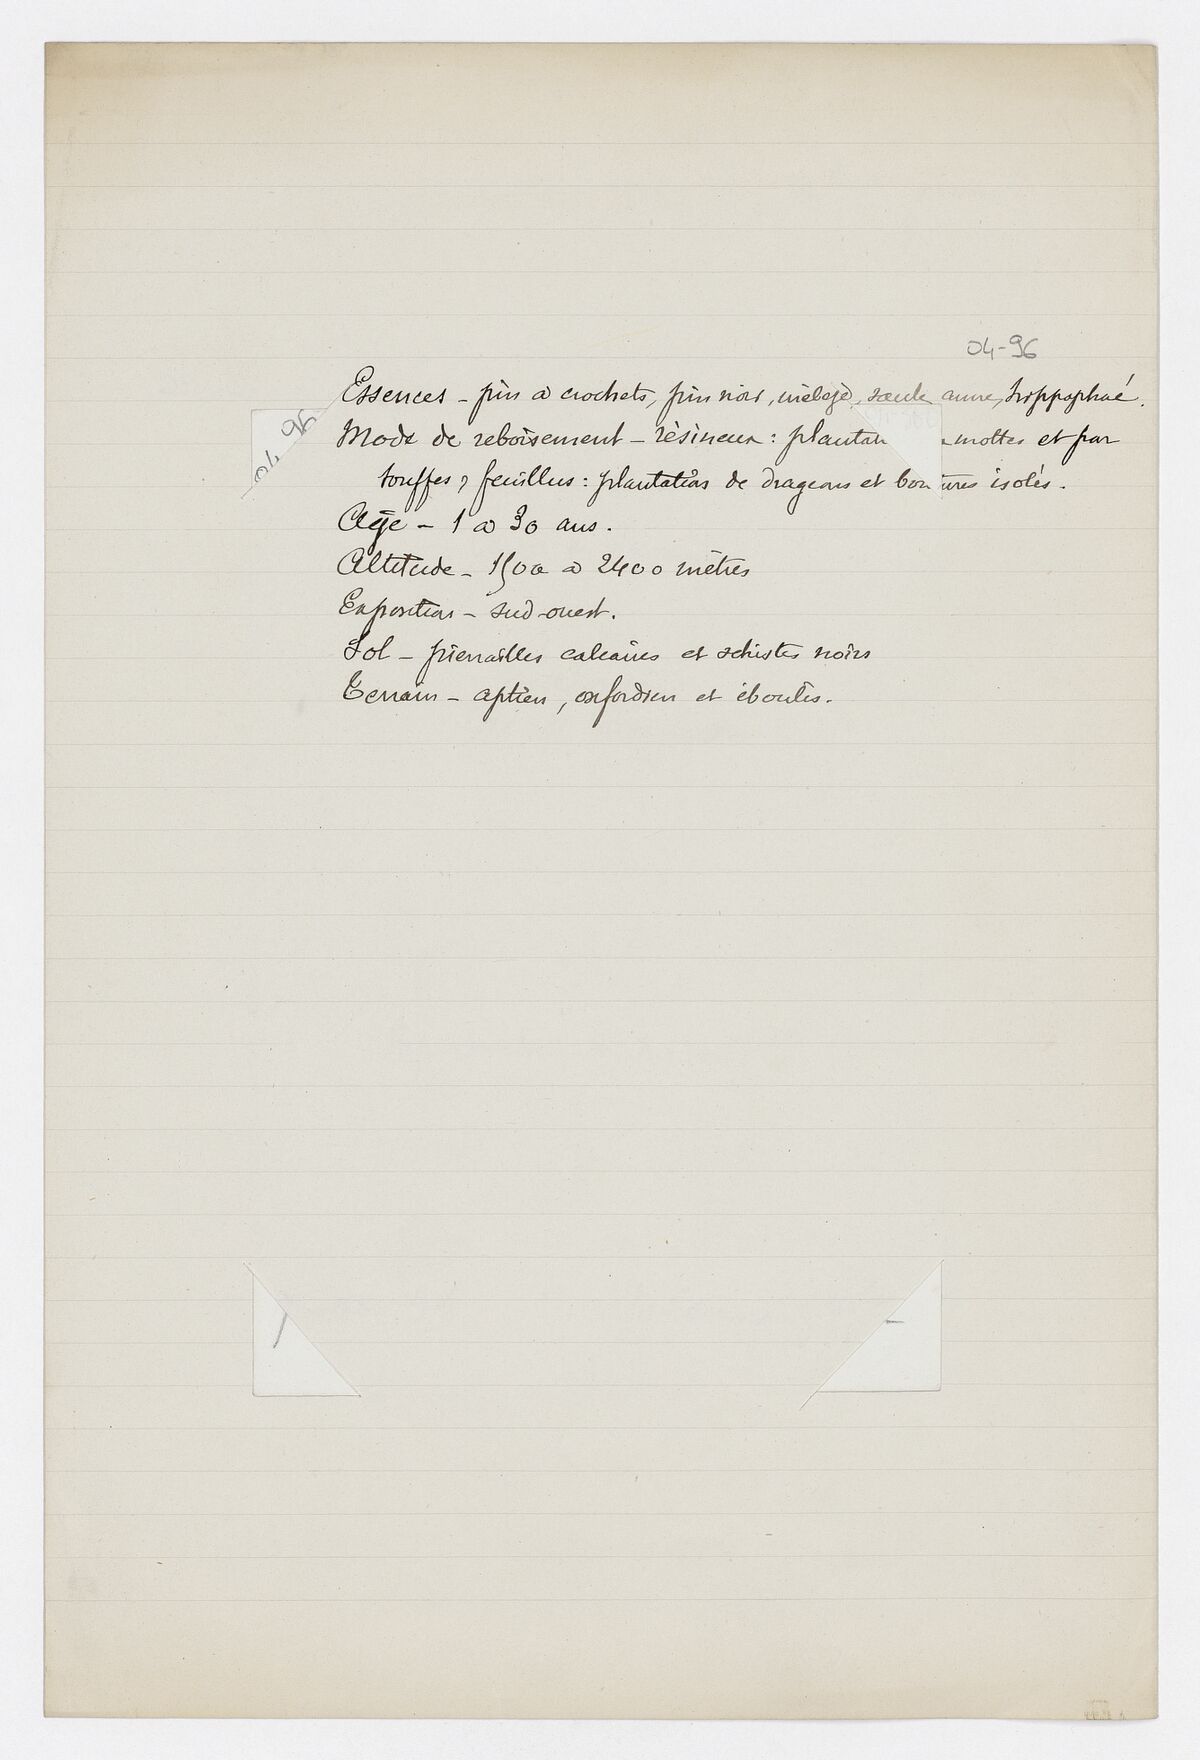 04-96
Essences - pin à crochets, pin noir, mélèze, saule, aune, hippophaé.
04 96
Mode de reboisement - résineux : plantat mottes et par
touffes, feuillus : plantations de drageons et boutures isolés.
Age - 1 à 30 ans.
Altitude - 1500 à 2400 mètres
Exposition - sud-ouest.
Sol - pierrailles calcaires et schistes noirs
Terrain - aptien, oxfordien et éboulis.